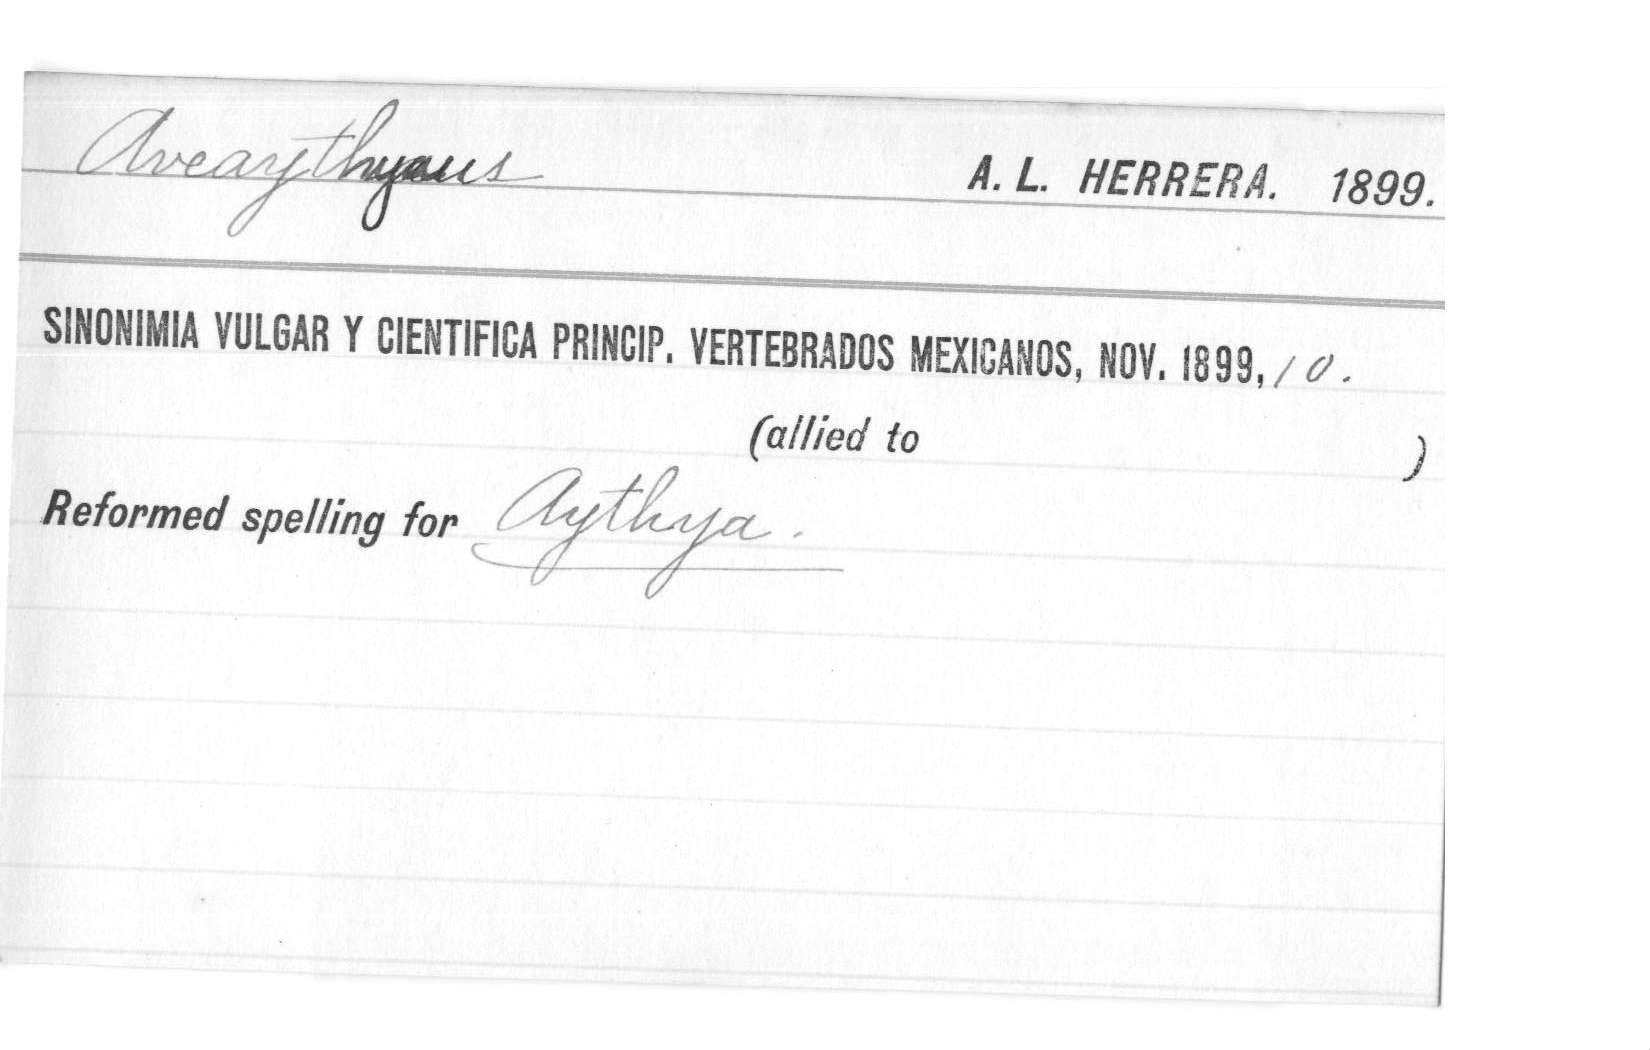 Aveaythyaus A. L. HERRERA. 1899.
SINONIMIA VULGAR Y CIENTIFICA PRINCIP. VERTEBRADOS MEXICANOS, NOV. 1899, 10.
(allied to )
Reformed spelling for Aythya.